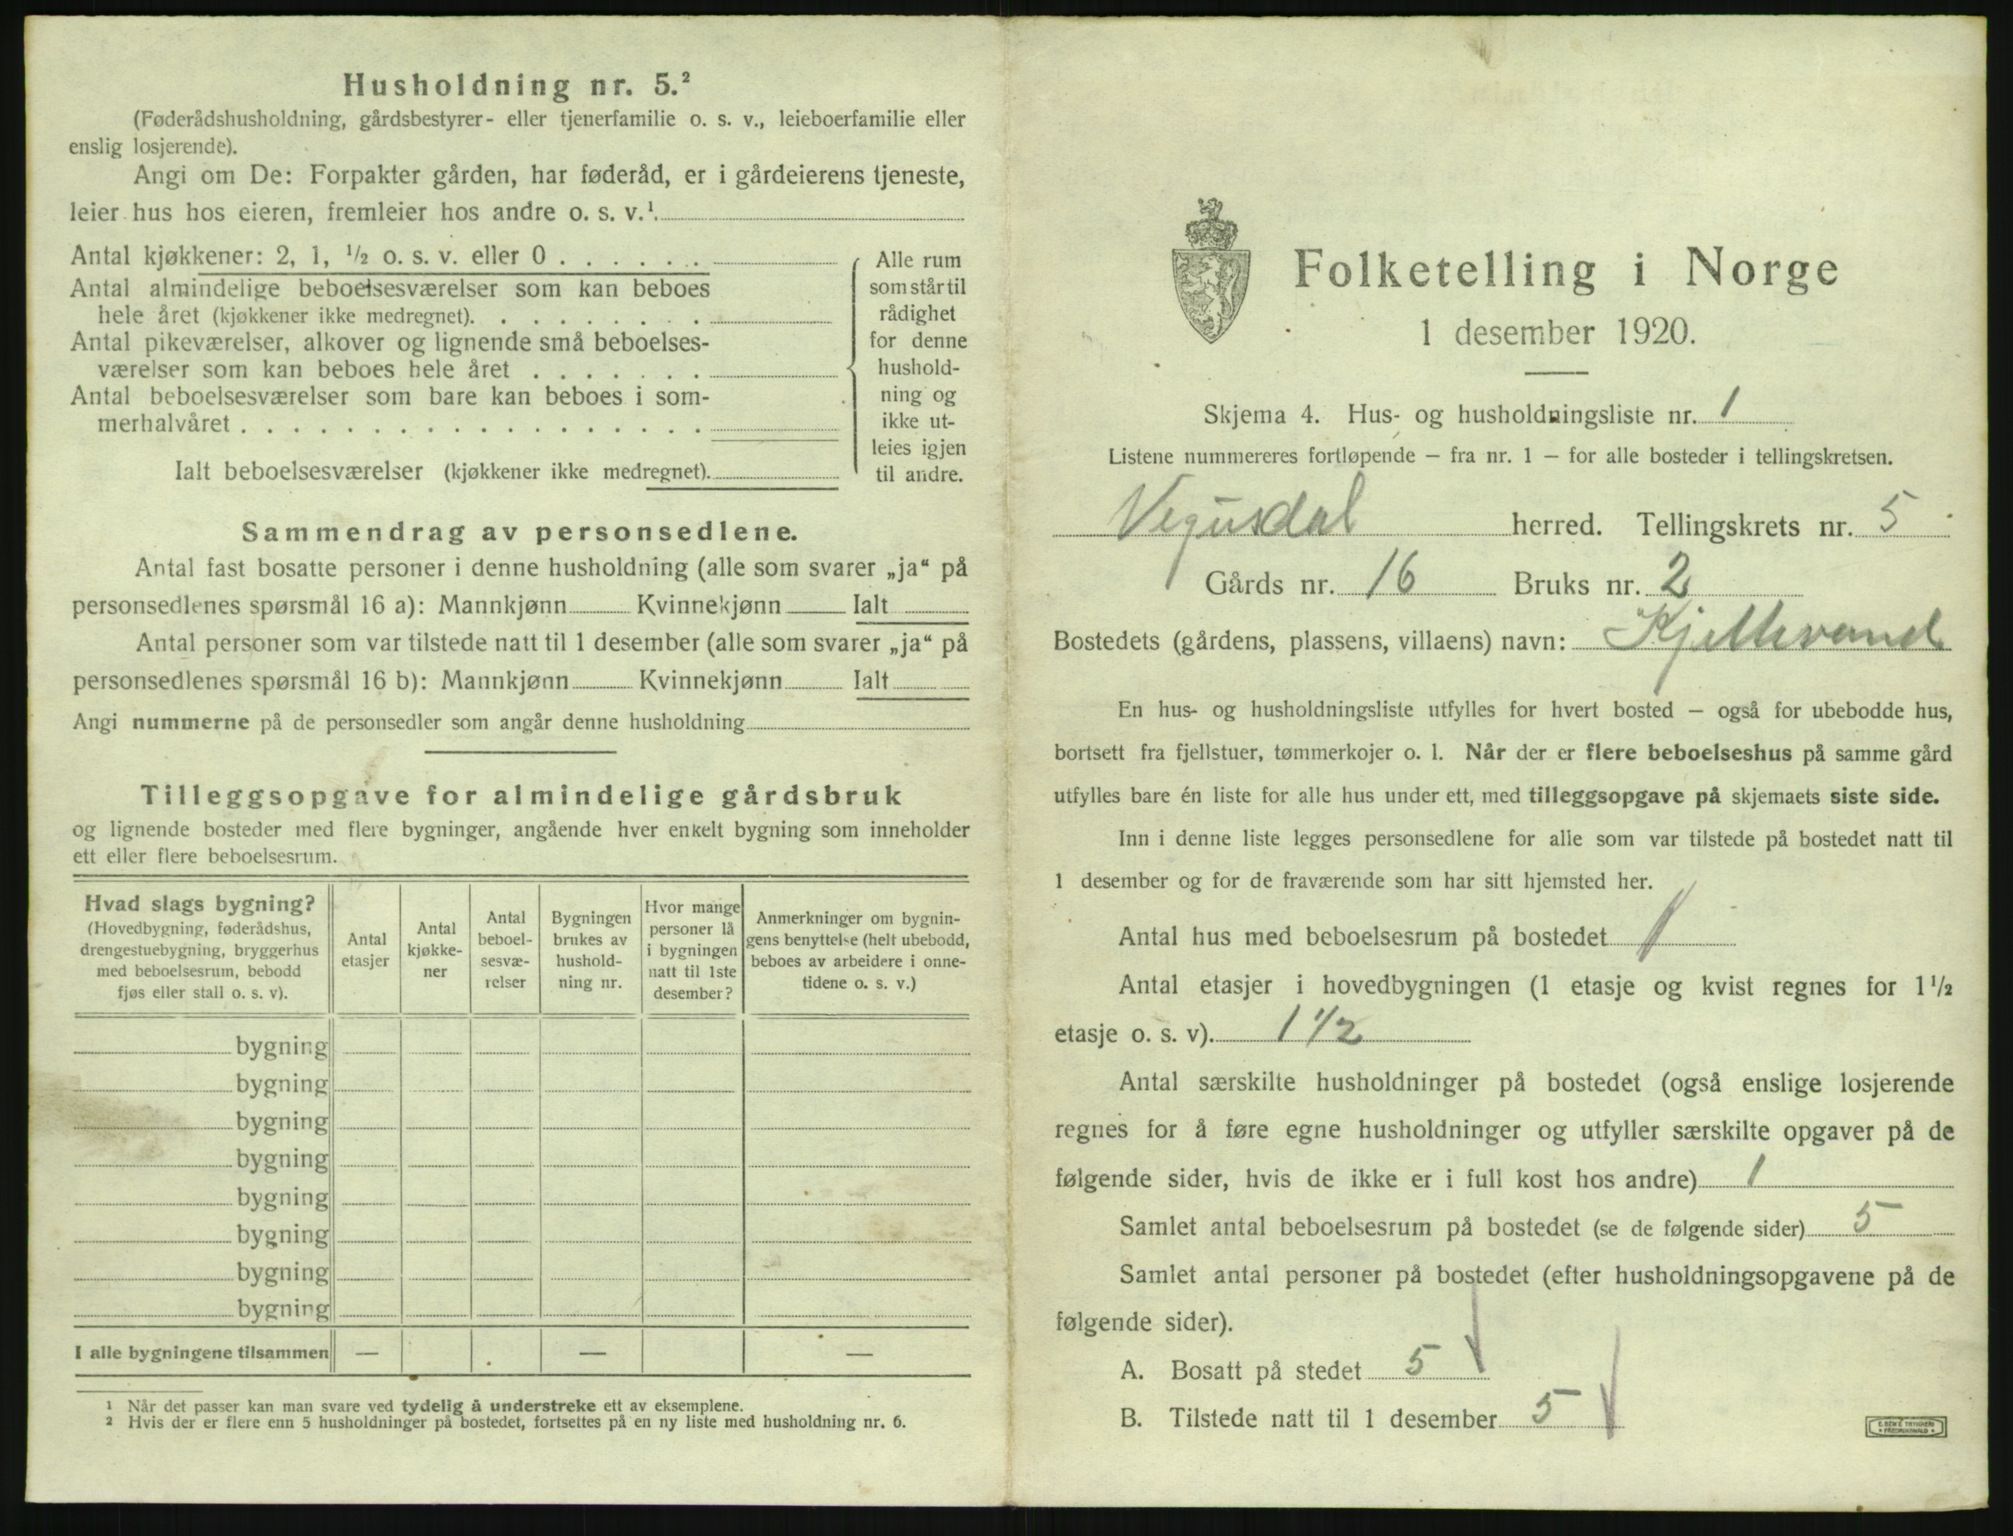 Husholdning nr. 5.²
(Føderådshusholdning, gårdsbestyrer- eller tjenerfamilie o. s. v., leieboerfamilie eller
enslig losjerende).
Angi om De: Forpakter gården, har føderåd, er i gårdeierens tjeneste,
leier hus hos eieren, fremleier hos andre o. s. v.¹.
Antal kjøkkener: 2, 1, ½ o. s. v. eller 0 . . . . . .
Antal almindelige beboelsesværelser som kan beboes
hele året (kjøkkener ikke medregnet). . . . . . . . .
Antal pikeværelser, alkover og lignende små beboelses-
værelser som kan beboes hele året . . . . . . .
Antal beboelsesværelser som bare kan beboes i som-
merhalvåret . . . . . . . . . . . . . . . . . .
Ialt beboelsesværelser (kjøkkener ikke medregnet).
Alle rum
som står til
rådighet
for denne
hushold-
ning og
ikke ut-
leies igjen
til andre.
Sammendrag av personsedlene.
Antal fast bosatte personer i denne husholdning (alle som svarer „ja“ på
personsedlenes spørsmål 16 a): Mannkjønn Kvinnekjønn Ialt
Antal personer som var tilstede natt til 1 desember (alle som svarer „ja“ på
personsedlenes spørsmål 16 b): Mannkjønn Kvinnekjønn Ialt
Angi nummerne på de personsedler som angår denne husholdning
Tilleggsopgave for almindelige gårdsbruk
og lignende bosteder med flere bygninger, angående hver enkelt bygning som inneholder
ett eller flere beboelsesrum.
Hvad slags bygning?
(Hovedbygning, føderådshus,
drengestuebygning, bryggerhus
med beboelsesrum, bebodd
fjøs eller stall o. s. v).
Antal
etasjer
Antal
kjøkke-
ner
Antal
beboel-
sesvæ-
relser
Bygningen
brukes av
hushold-
ning nr.
Hvor mange
personer lå
i bygningen
natt til 1ste
desember?
Anmerkninger om bygnin-
gens benyttelse (helt ubebodd,
beboes av arbeidere i onne-
tidene o. s. v.)
bygning
bygning
bygning
bygning
bygning
bygning
bygning
bygning
I alle bygningene tilsammen — — —
¹ Når det passer kan man svare ved tydelig å understreke ett av eksemplene.
² Hvis der er flere enn 5 husholdninger på bostedet, fortsettes på en ny liste med husholdning nr. 6.
Folketelling i Norge
1 desember 1920.
Skjema 4. Hus- og husholdningsliste nr. 1
Listene nummereres fortløpende – fra nr. 1 – for alle bosteder i tellingskretsen.
Vegusdal herred. Tellingskrets nr. 5
Gårds nr. 16 Bruks nr. 2
Bostedets (gårdens, plassens, villaens) navn: Kjettevand
En hus- og husholdningsliste utfylles for hvert bosted – også for ubebodde hus,
bortsett fra fjellstuer, tømmerkojer o. l. Når der er flere beboelseshus på samme gård
utfylles bare én liste for alle hus under ett, med tilleggsopgave på skjemaets siste side.
Inn i denne liste legges personsedlene for alle som var tilstede på bostedet natt til
1 desember og for de fraværende som har sitt hjemsted her.
Antal hus med beboelsesrum på bostedet 1
Antal etasjer i hovedbygningen (1 etasje og kvist regnes for 1½
etasje o. s. v). 1 1/2
Antal særskilte husholdninger på bostedet (også enslige losjerende
regnes for å føre egne husholdninger og utfyller særskilte opgaver på de
følgende sider, hvis de ikke er i full kost hos andre) 1
Samlet antal beboelsesrum på bostedet (se de følgende sider) 5
Samlet antal personer på bostedet (efter husholdningsopgavene på de
følgende sider).
A. Bosatt på stedet 5
B. Tilstede natt til 1 desember 5